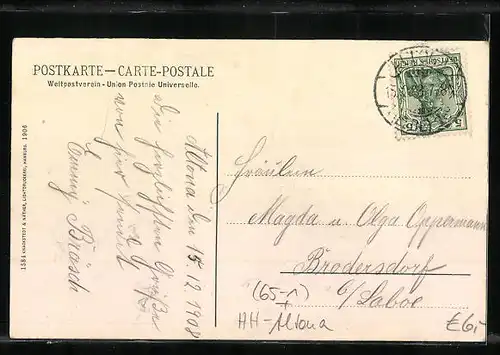 POSTKARTE — CARTE-POSTALE
Weltpostverein - Union Postale Universelle.
1584 KNACKSTEDT & NÄTHER, LICHTDRUCKEREI, HAMBURG. 1906
Altona den 15.12.1908
Die herzlichsten Grüße
von hier sendet
Emmy Bräsch
Fräulein
Magda u. Olga Oppermann
Brodersdorf
b/Laboe
(65-1)
HH-Altona
€6,-